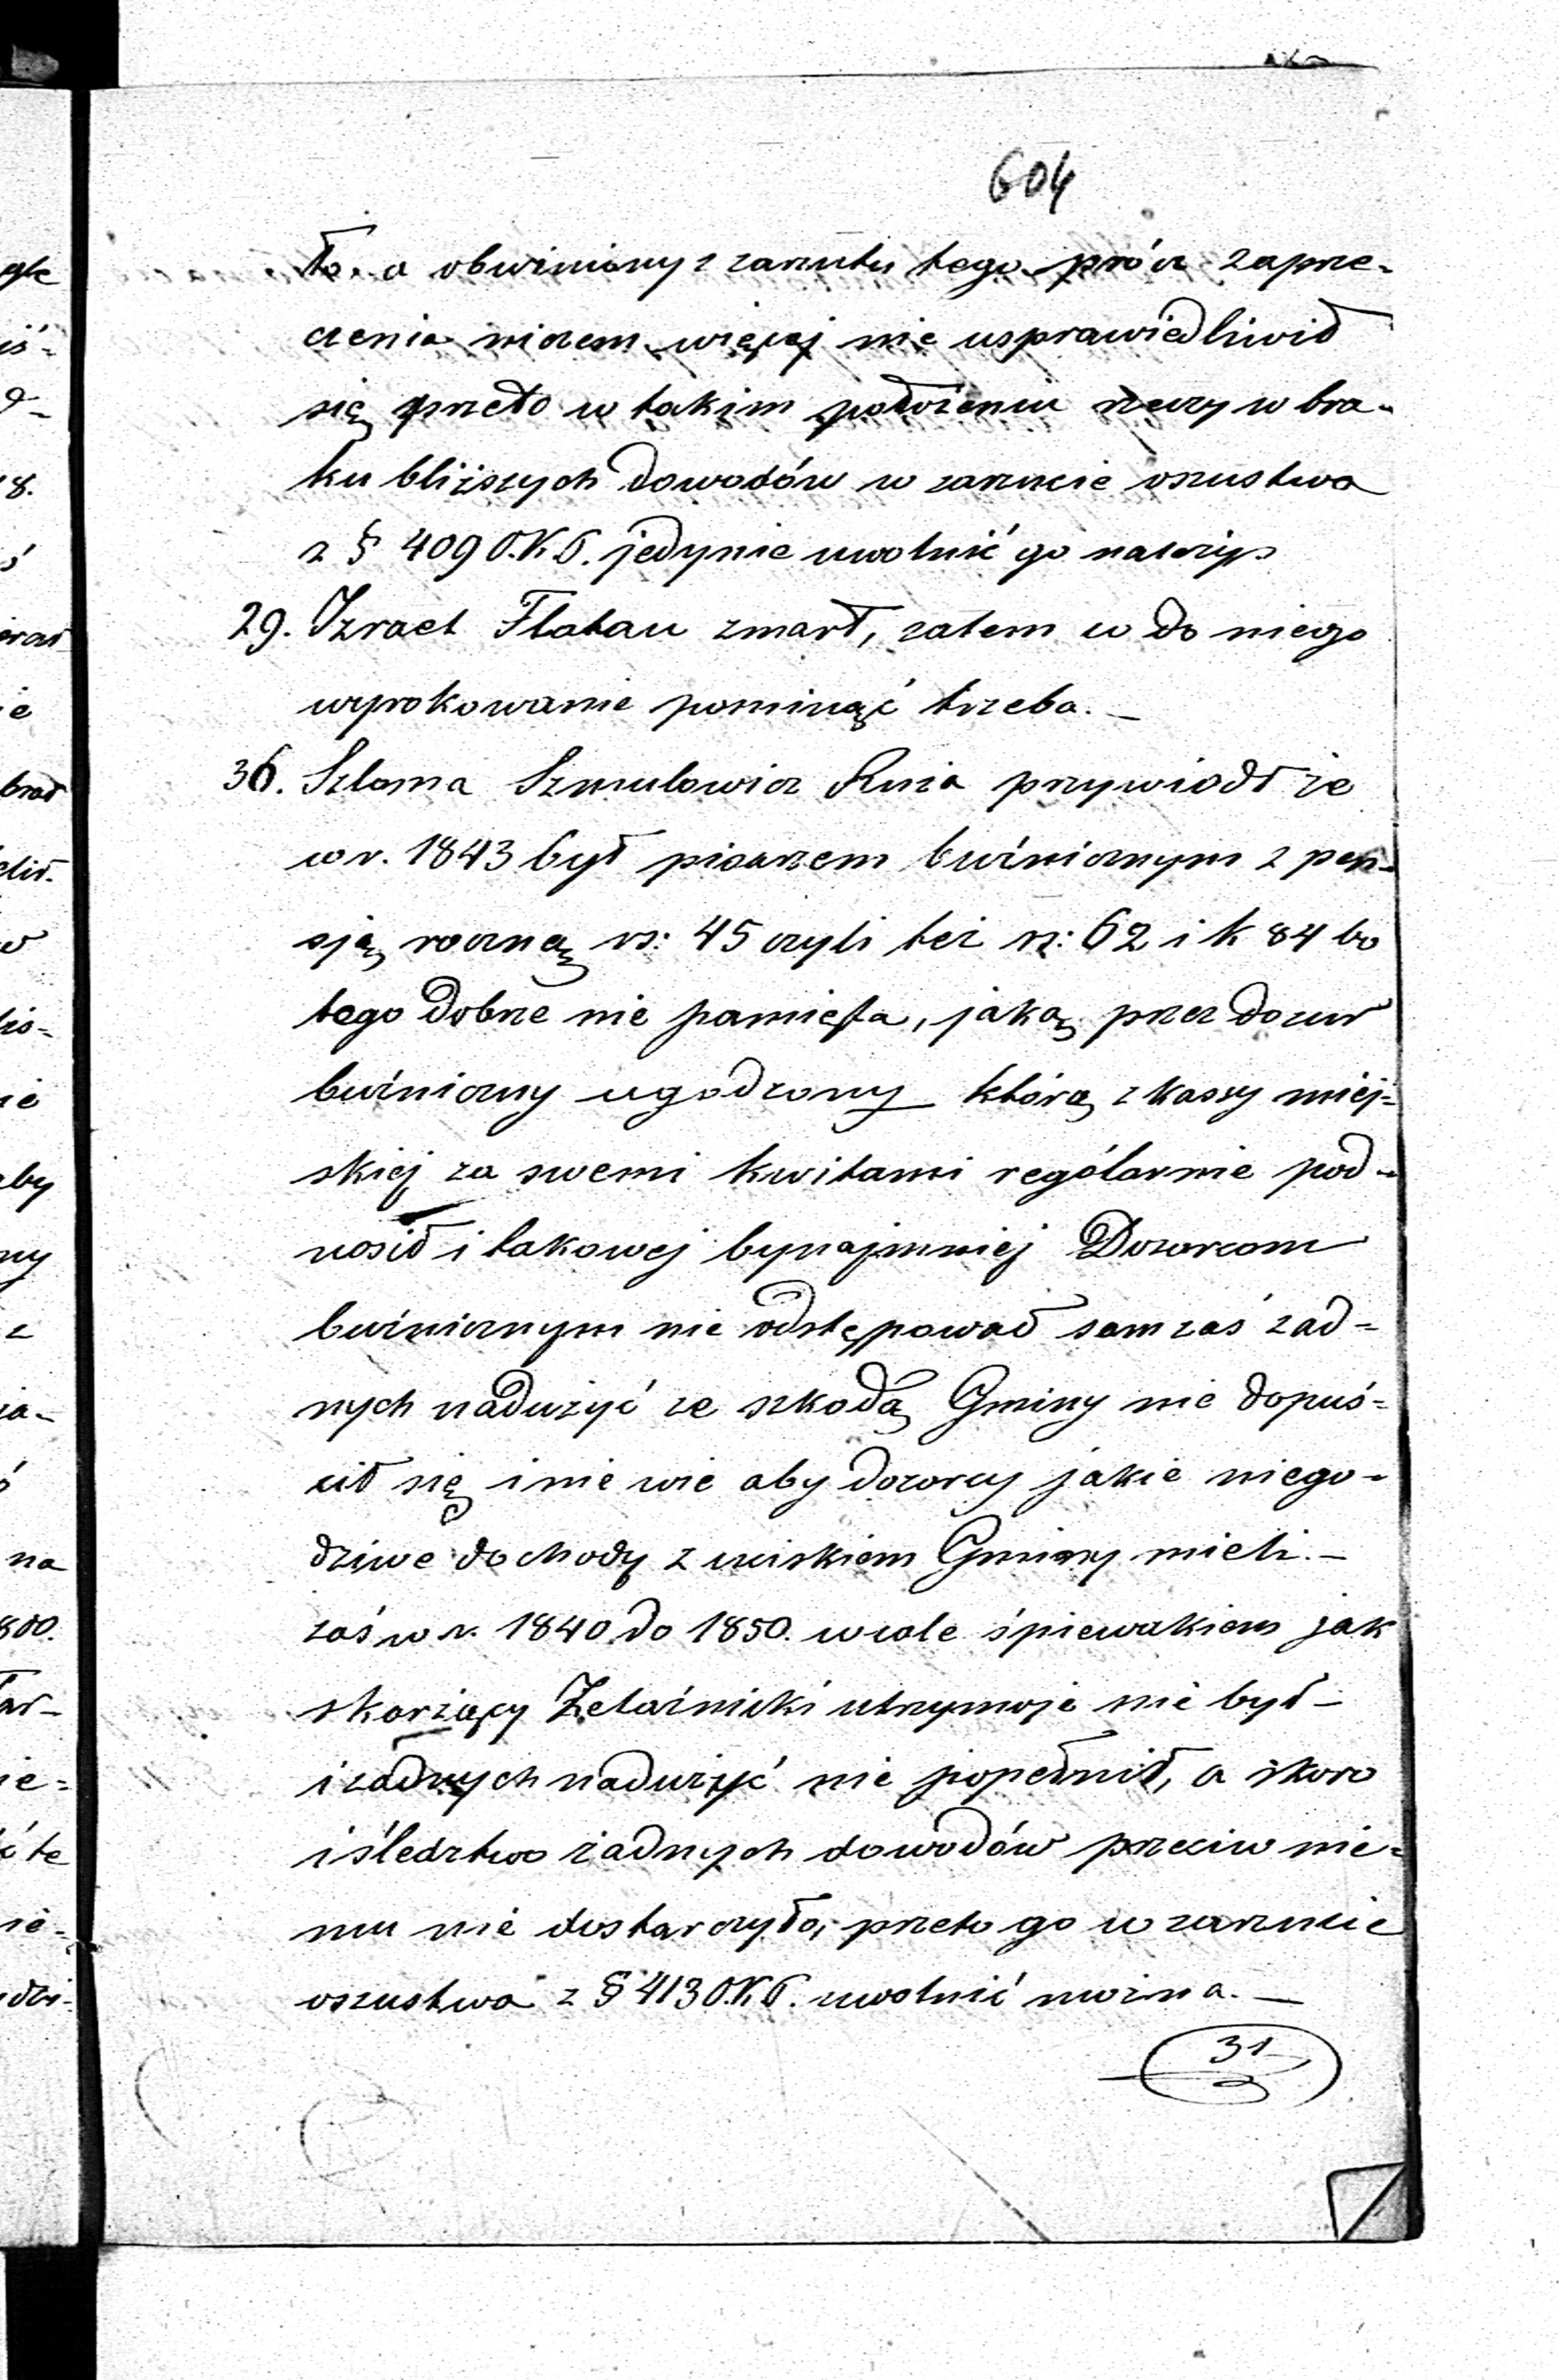 604
ło. a obwiniony z zarzutu tego prócz zaprze-
czenia niczem więcej nie usprawiedliwił
się przeto w takim położeniu rzeczy w bra-
ku bliższych dowodów w zarzucie oszustwa
z § 409 O.K.G. jedynie uwolnić go należy
29. Izrael Flatau zmarł, zatem w do niego
wyrokowanie pominąć trzeba. —
36. Szloma Szmulowicz Ruża przywiódł że
w r. 1843 był pisarzem bużnicznym z pen-
sją roczną rs: 45 czyli też rs: 62 i k 84 bo
tego dobrze nie pamięta, jaką przez dozur
bużniczny ugodzony którą z kassy miej-
skiej za swemi kwitami rególarnie pod-
nosił i takowej bynajmniej Dozorcom
bużnicznym nie odstępował sam zaś żad-
nych nadużyć ze szkodą Gminy nie dopuś-
cił się i nie wie aby dozorcy jakie niego-
dziwe dochody z uciskiem Gminy mieli. —
zaś w r. 1840 do 1850. wcale śpiewakiem jak
skarżący Żelaźnicki utrzymuje nie był —
i żadnych nadużyć nie popełnił, a skoro
i śledztwo żadnych dowodów przeciw nie-
mu nie dostarczyło, przeto go w zarzucie
oszustwa z § 413 O.K.G. uwolnić można. —
31